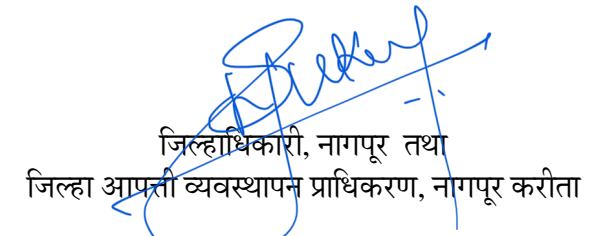 जिल्हाधिकारी, नागपूर तथा
जिल्हा आपत्ती व्यवस्थापन प्राधिकरण, नागपूर करीता